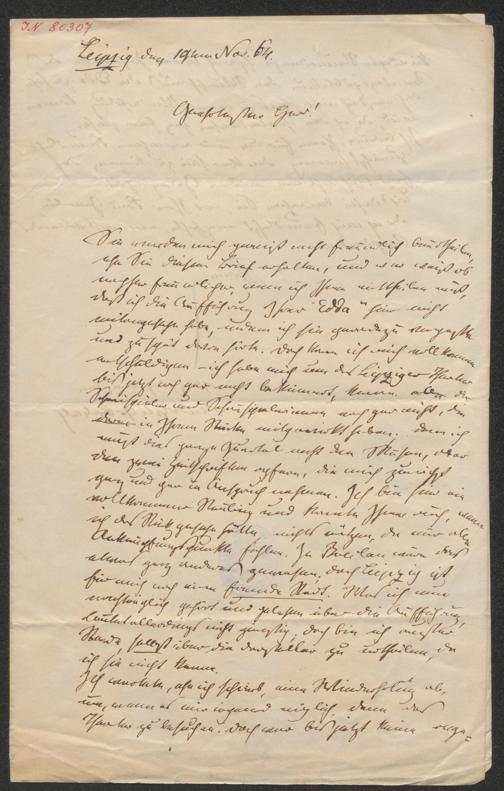 IN 80307
Leipzig den 19ten Nov. 64.
Geehrtester Herr!
Sie werden mich gewiß nicht freundlich beurtheilen,
ehe Sie diesen Brief erhalten, und wer weiß ob
nachher freundlicher, wenn ich Ihnen mittheilen muß,
daß ich die Aufführung Ihrer "Edda" hier nicht
mitangesehen habe, indem ich sie geradezu vergaß
und zu spät davon hörte. Doch kann ich mich vollkommen
entschuldigen – ich habe mich um das Leipziger Theater
bis jetzt noch gar nicht bekümmert, kenne aber die
Schauspieler und Schauspielerinnen noch gar nicht, die
in Ihrem Stücke mitgewirkt haben, denn ich
muß das ganze Quartal nicht den Musen, aber
den zwei Zeitschriften opfern, die mich zunächst
ganz und gar in Anspruch nehmen. Ich bin hier ein
vollkommener Neuling und könnte Ihnen auch, wenn
ich das Stück gesehen hätte, nichts nützen, da mir alle
Anknüpfungspunkte fehlen. In Breslau wäre das
etwas ganz anderes gewesen, doch Leipzig ist
für mich noch eine fremde Stadt. Was ich nun
nachträglich gehört und gelesen über die Aufführung,
lautet allerdings nicht günstig, doch bin ich außer
Stande, selbst über die Darsteller zu urtheilen, da
ich sie nicht kenne.
Ich wartete, ehe ich schrieb, eine Wiederholung ab,
um, wenn es mir irgend möglich, dann das
Theater zu besuchen. Doch war bis jetzt keine ange=